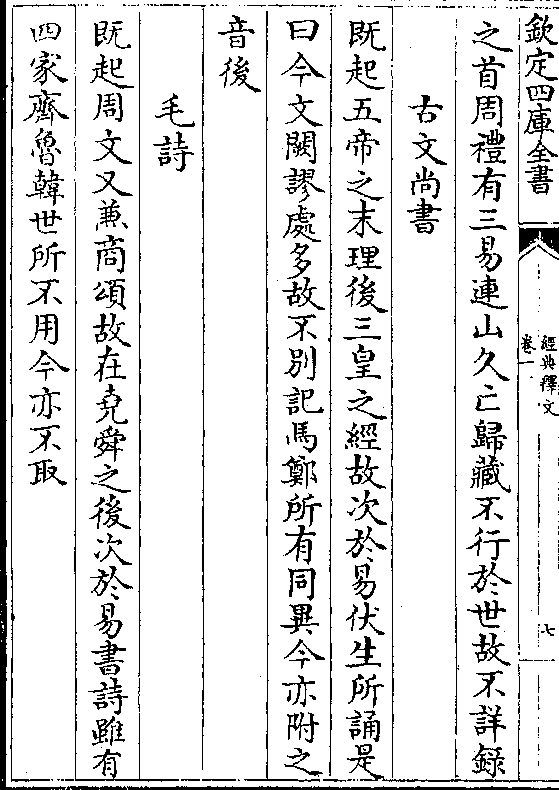 欽定四庫全書
經典釋文
卷一
七
之首周禮有三易連山久亡歸藏不行於世故不詳錄
古文尚書
既起五帝之末理後三皇之經故次於易伏生所誦是
曰今文闕謬處多故不別記馬鄭所有同異今亦附之
音後
毛詩
既起周文又兼商頌故在堯舜之後次於易書詩雖有
四家齊魯韓世所不用今亦不取